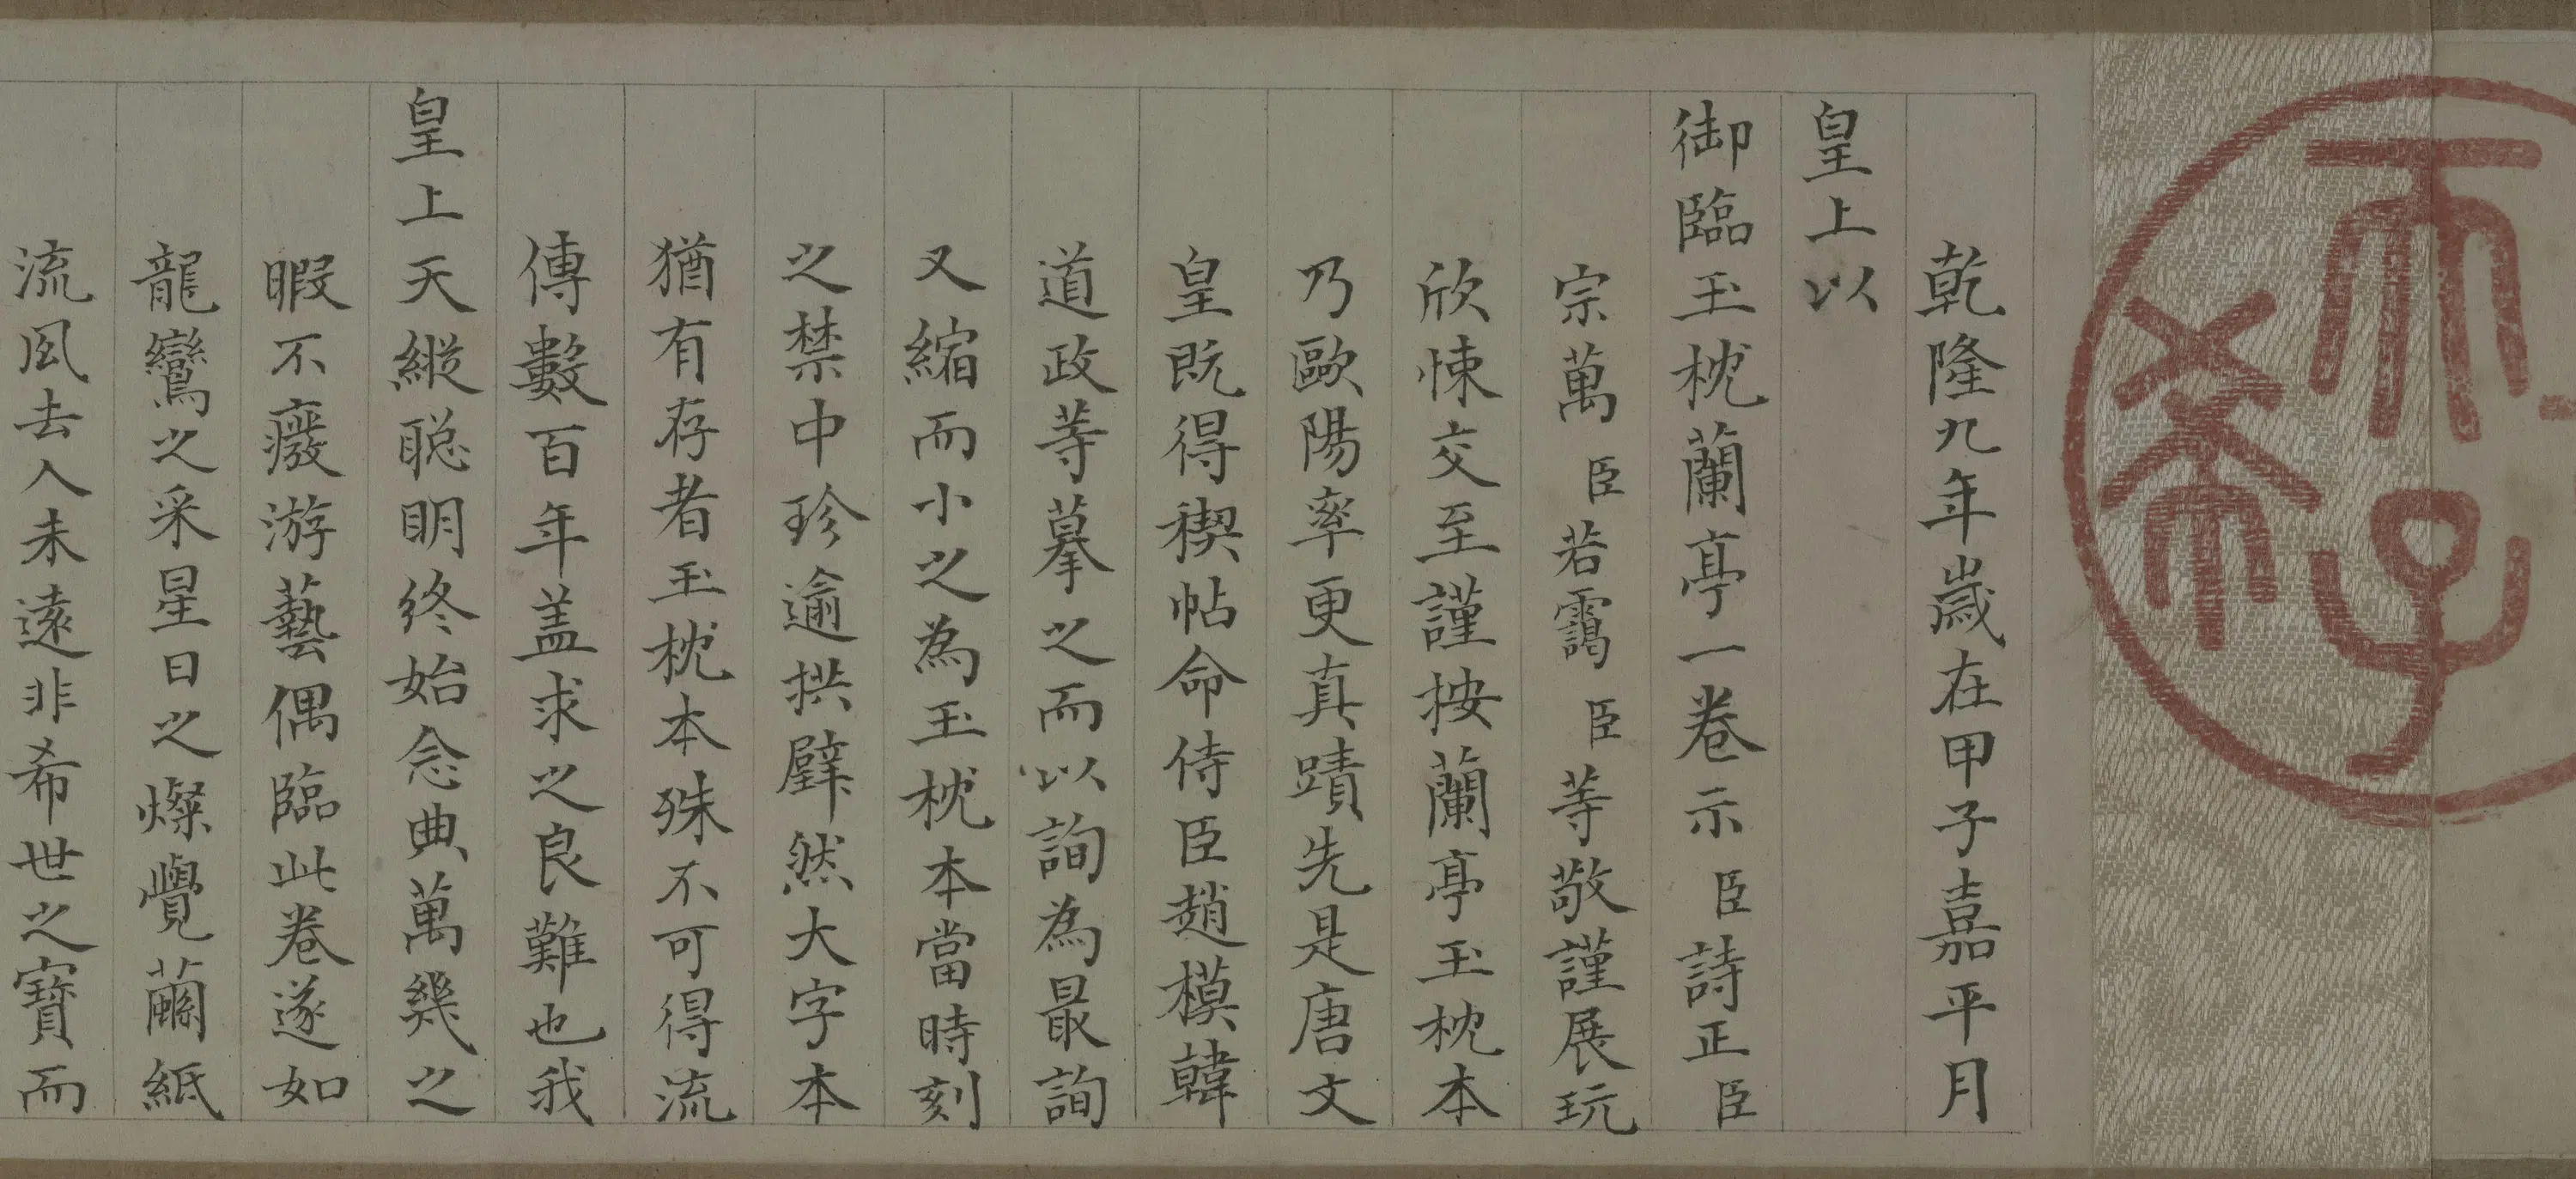 乾隆九年歲在甲子嘉平月
皇上以
御臨玉枕蘭亭一卷示臣詩正臣
宗萬臣若靄臣等敬謹展玩
欣悚交至謹按蘭亭玉枕本
乃歐陽率更真蹟先是唐文
皇既得稧帖命侍臣趙模韓
道政等摹之而以詢為最詢
又縮而小之為玉枕本當時刻
之禁中珍逾拱璧然大字本
猶有存者玉枕本殊不可得流
傳數百年盖求之良難也我
皇上天縱聡明終始念典萬幾之
暇不癈游藝偶臨此卷遂如
龍鸞之采星日之燦覺繭紙
流風去人未遠非希世之寶而
天子
希